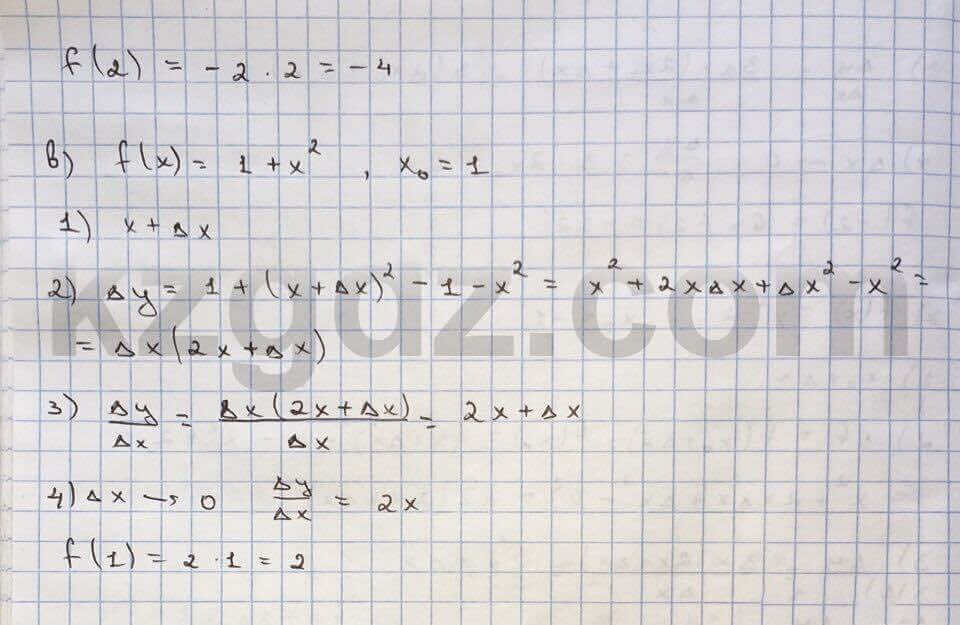 f(2) = -2 · 2 = -4
в) f(x) = 1 + x² , x₀ = 1
1) x + Δx
2) Δy = 1 + (x + Δx)² - 1 - x² = x² + 2xΔx + Δx² - x² =
= Δx(2x + Δx)
3) Δy/Δx = Δx(2x + Δx)/Δx = 2x + Δx
4) Δx → 0 Δy/Δx = 2x
f(1) = 2 · 1 = 2
kzgdz.com